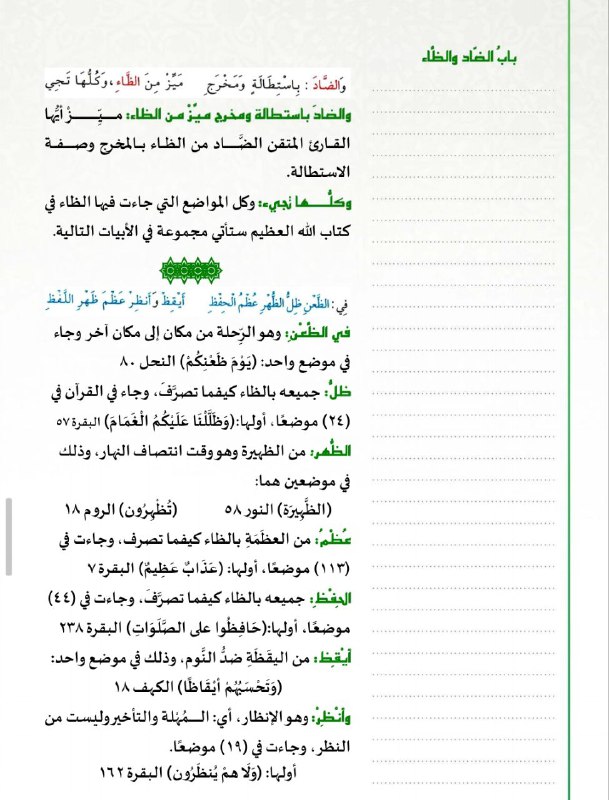 بابُ الضّاد والظّاء
وَالضَّادَ : بِاسْتِطَالَةٍ وَمَخْرَجِ مَيِّزْ مِنَ الظَّاءِ، وَكُلُّهَا تَجِي
والضادَ باستطالة ومخرج ميّزْ من الظاء: مـيِّـــزْ أيُّها
القـارئ المتقن الضَّـــاد من الظـاء بـالمخرج وصــفـة
الاستطالة.
وكلُّـــــها تجيء: وكل المواضع التي جاءت فيها الظاء في
كتاب الله العظيم ستأتي مجموعة في الأبيات التالية.
فِي: الظَّعْنِ ظِلُّ الظُّهْرِ عُظْمُ الْحِفْظِ أَيْقِظْ وَأَنظِرْ عَظْمَ ظَهْرِ اللَّفْظِ
في الظَّعْنِ: وهو الرِّحلة من مكان إلى مكان آخر وجاء
في موضع واحد: (يَوْمَ ظَعْنِكُمْ) النحل ٨٠
ظلُّ: جميعه بالظاء كيفما تصرَّفَ، وجاء في القرآن في
(٢٤) موضعًا، أولها:(وَظَلَّلْنَا عَلَيْكُمُ الْغَمَامَ) البقرة٥٧
الظُّهر: من الظهيرة وهو وقت انتصاف النهار، وذلك
في موضعين هما:
(الظَّهِيرَةِ) النور ٥٨ (تُظْهِرُون) الروم ١٨
عُظْمُ: من العظَمَةِ بالظاء كيفما تصرف، وجاءت في
(١١٣) موضعًا، أولها: (عَذَابٌ عَظِيمٌ) البقرة ٧
الحِفْظِ: جميعه بالظاء كيفما تصرَّفَ، وجاءت في (٤٤)
موضعًا، أولها:(حَافِظُوا على الصَّلَوَاتِ) البقرة ٢٣٨
أيْقِظْ: من اليقَظَةِ ضدُّ النَّوم، وذلك في موضع واحد:
(وَتَحْسَبُهُمْ أيْقَاظًا) الكهف ١٨
وأنْظِرْ: وهو الإنظار، أي: الـــمُهْلة والتأخير وليست من
النظر، وجاءت في (١٩) موضعًا.
أولها: (وَلَا همْ يُنظَرُون) البقرة ١٦٢